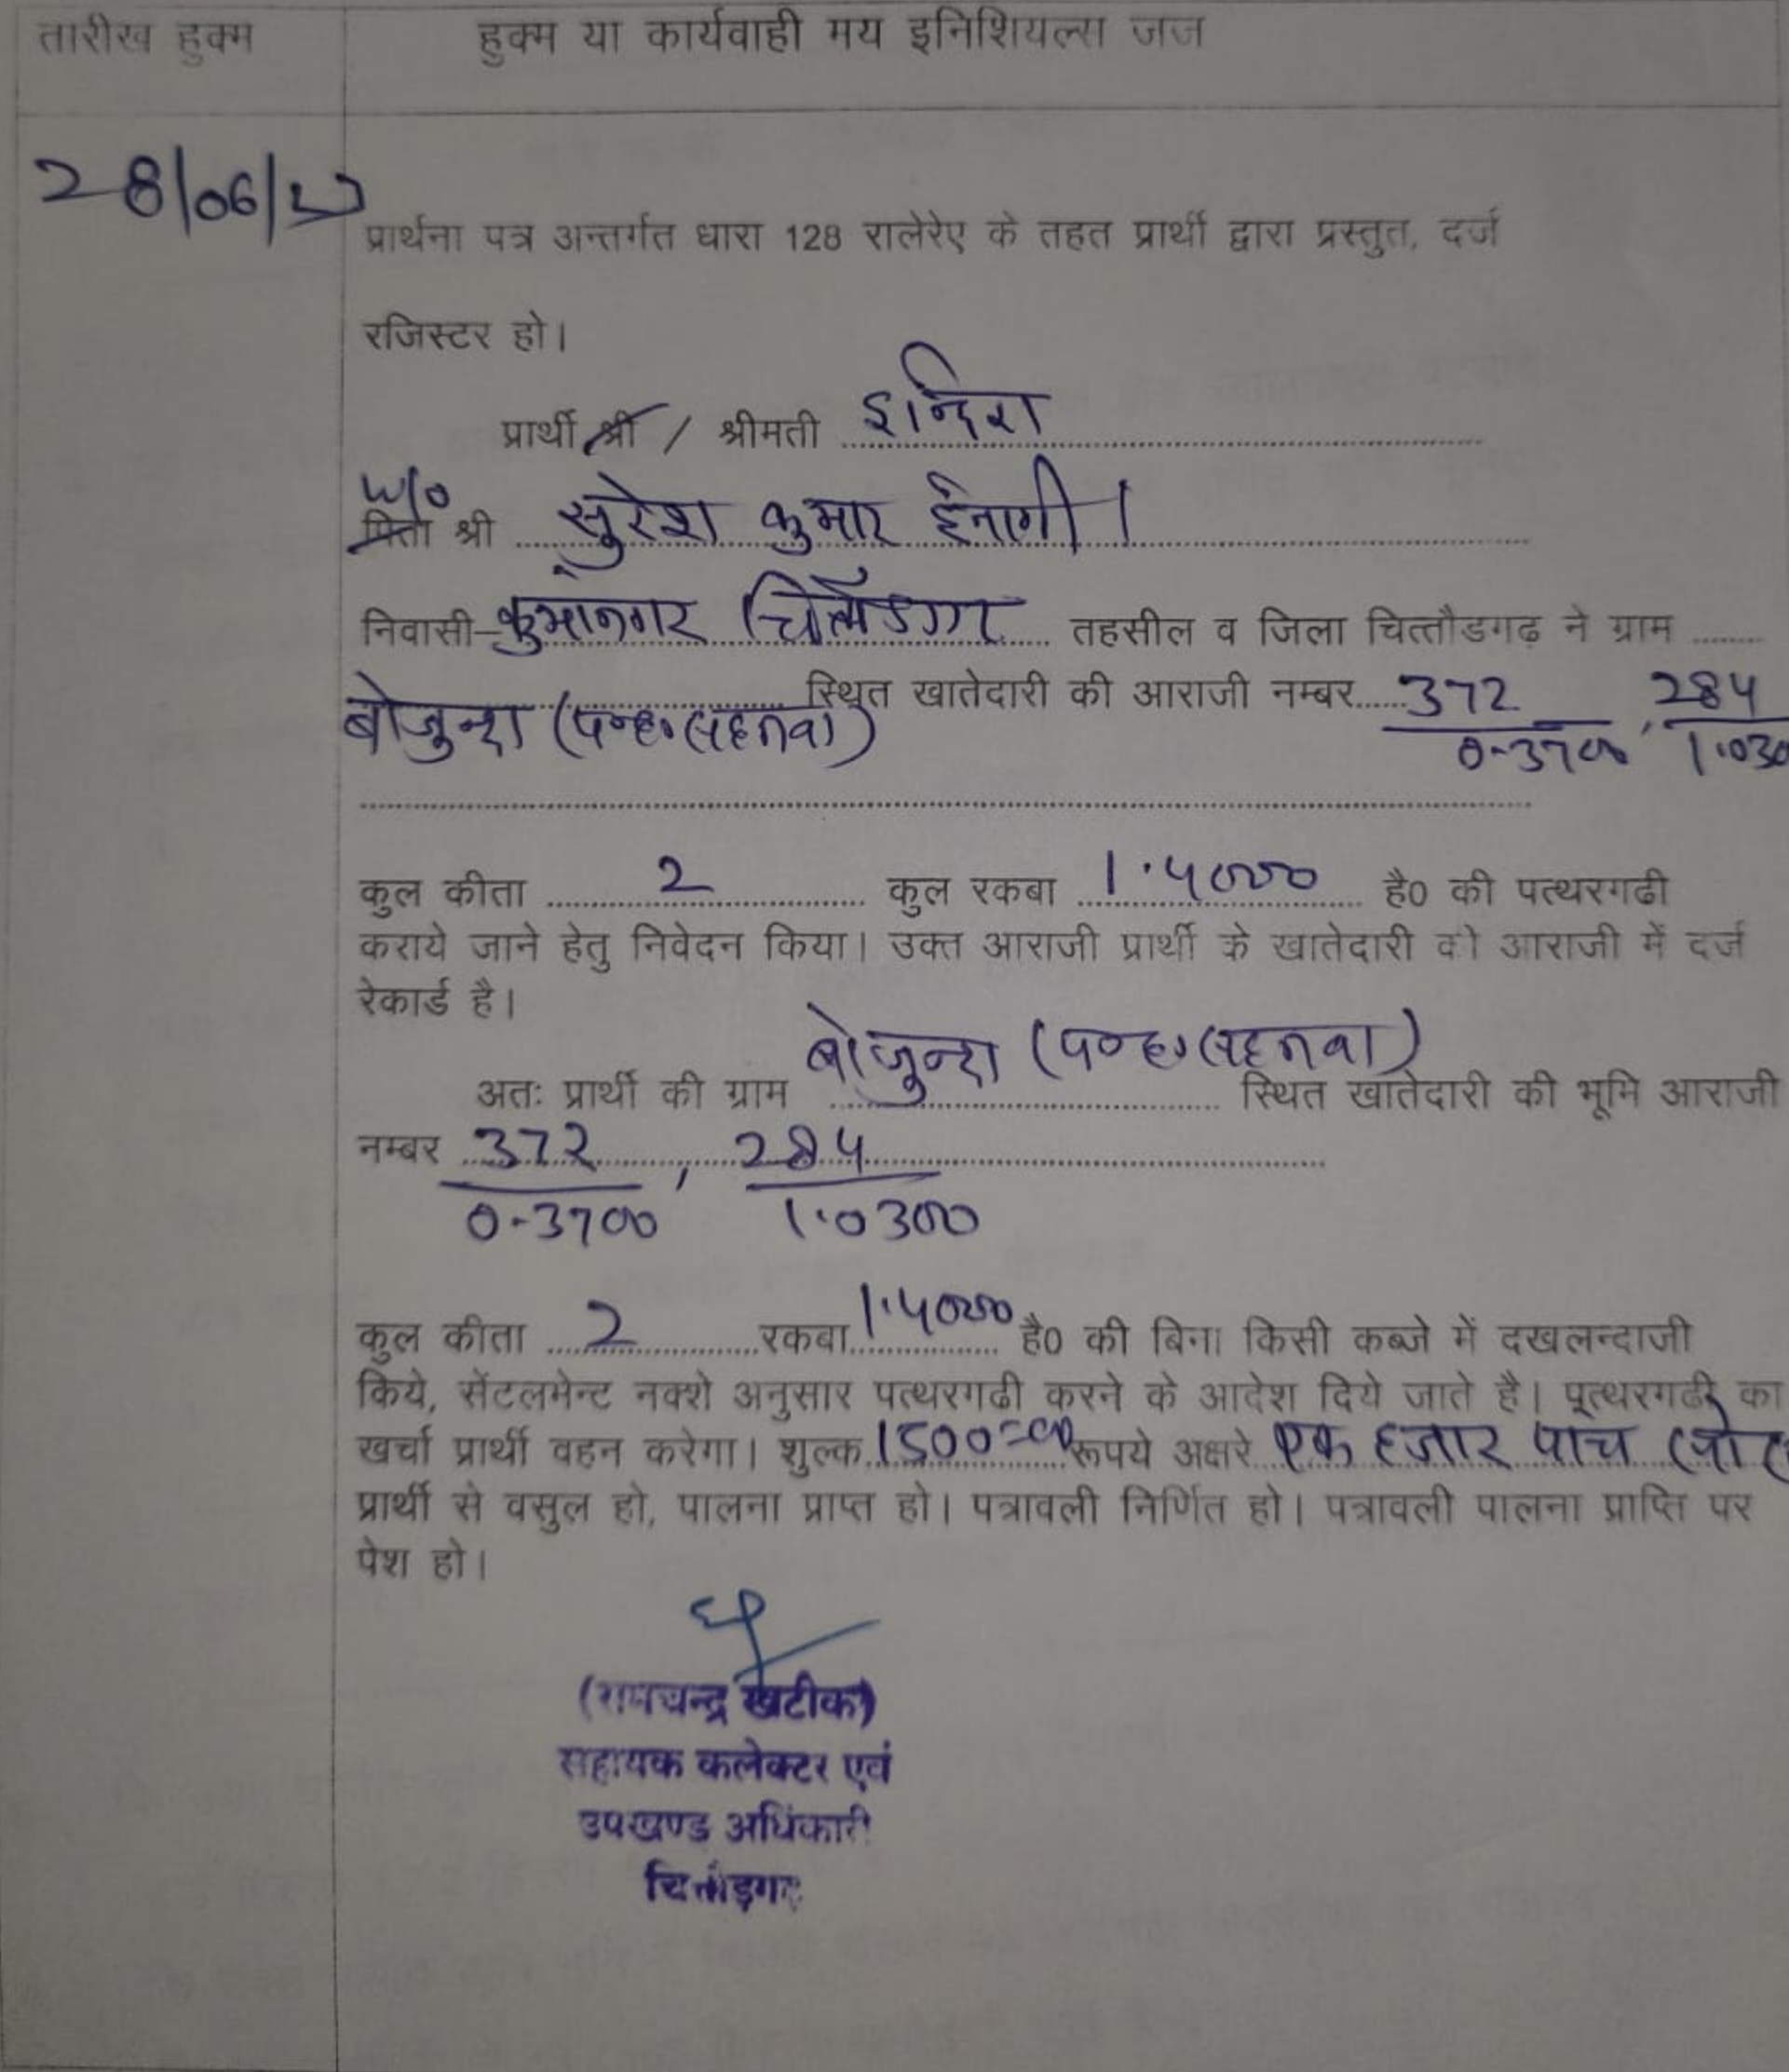 तारीख हुक्म
हुक्म या कार्यवाही मय इनिशियल्स जज
28/06/
प्रार्थना पत्र अन्तर्गत धारा 128 रालेरेए के तहत प्रार्थी द्वारा प्रस्तुत, दर्ज
रजिस्टर हो।
प्रार्थी श्री / श्रीमती इन्दिरा
W/o
पिता श्री सुरेश कुमार ईनाणी।
निवासी- कुम्भानगर चित्तौडगढ तहसील व जिला चित्तौडगढ़ ने ग्राम
बोजुन्दा (प०ह० स्थित खातेदारी की आराजी नम्बर 372 , 284
0-3700 1.030
कुल कीता 2 कुल रकबा 1.4000 है0 की पत्थरगढी
कराये जाने हेतु निवेदन किया। उक्त आराजी प्रार्थी के खातेदारी की आराजी में दर्ज
रेकार्ड है।
बोजुन्दा (प०ह०
अतः प्रार्थी की ग्राम स्थित खातेदारी की भूमि आराजी
नम्बर 372 , 284
0-3700 1.0300
कुल कीता 2 रकबा 1.4000 है0 की बिना किसी कब्जे में दखलन्दाजी
किये, सेंटलमेन्ट नक्शे अनुसार पत्थरगढी करने के आदेश दिये जाते है। पत्थरगढी का
खर्चा प्रार्थी वहन करेगा। शुल्क 1500=00 रूपये अक्षरे एक हजार पांच
प्रार्थी से वसुल हो, पालना प्राप्त हो। पत्रावली निर्णित हो। पत्रावली पालना प्राप्ति पर
पेश हो।
(रामचन्द्र खटीक)
सहायक कलेक्टर एवं
उपखण्ड अधिकारी
चित्तौड़गढ़